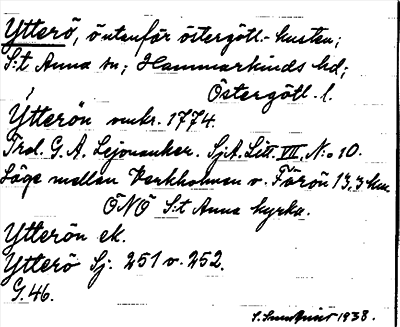 Ytterö, ö utanför östergötl.-kusten;
S:t Anna sn; Hammarkinds hd;
Östergötl. l.
Ytterön omkr. 1774.
Trol. G. A. Lejonanker. SjA. Litt. VII, N:o 10.
Läge mellan Verkholmen o. Färön 13,3 km
ÖNÖ S:t Anna kyrka.
Ytterön ek.
Ytterö Sj. 251 o. 252.
G. 46.
1938.